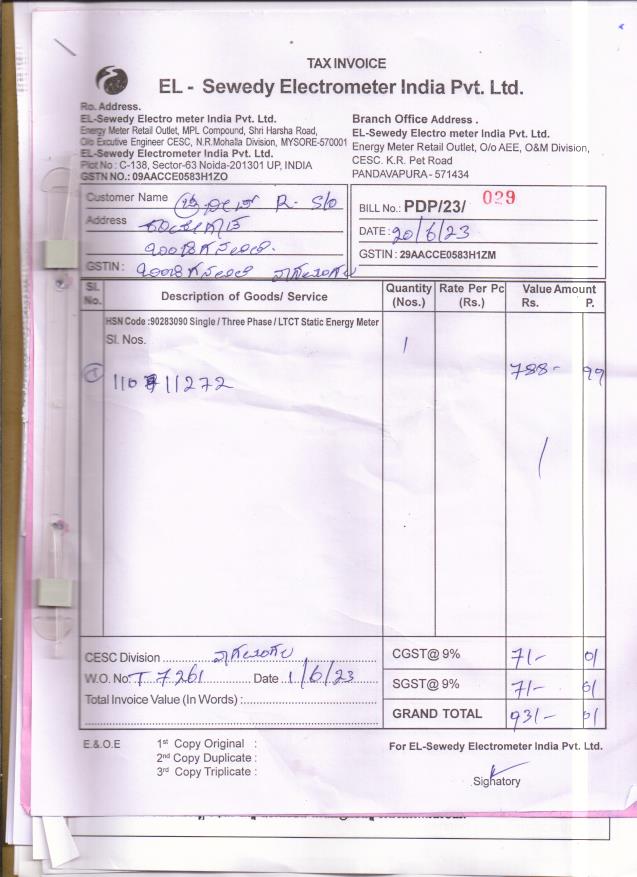 TAX INVOICE
EL - Sewedy Electrometer India Pvt. Ltd.
Ro. Address.
EL-Sewedy Electro meter India Pvt. Ltd.
Energy Meter Retail Outlet, MPL Compound, Shri Harsha Road,
O/o Excutive Engineer CESC, N.R.Mohalla Division, MYSORE-570001
EL-Sewedy Electrometer India Pvt. Ltd.
Plot No : C-138, Sector-63 Noida-201301 UP, INDIA
GSTN NO.: 09AACCE0583H1ZO
Branch Office Address .
EL-Sewedy Electro meter India Pvt. Ltd.
Energy Meter Retail Outlet, O/o AEE, O&M Division,
CESC. K.R. Pet Road
PANDAVAPURA - 571434
Customer Name R- S/o
Address
GSTIN :
BILL No.: PDP/23/ 029
DATE : 20/6/23
GSTIN : 29AACCE0583H1ZM
Sl. No. Description of Goods/ Service Quantity (Nos.) Rate Per Pc (Rs.) Value Amount Rs. P.
HSN Code :90283090 Single / Three Phase / LTCT Static Energy Meter
Sl. Nos. 1
788- 99
11272
CESC Division
W.O. No: T 7261 Date 1/6/23
Total Invoice Value (In Words) :
CGST@ 9% 71/- 01
SGST@ 9% 71/- 01
GRAND TOTAL 931/- 01
E.& O.E 1st Copy Original :
2nd Copy Duplicate :
3rd Copy Triplicate :
For EL-Sewedy Electrometer India Pvt. Ltd.
Signatory